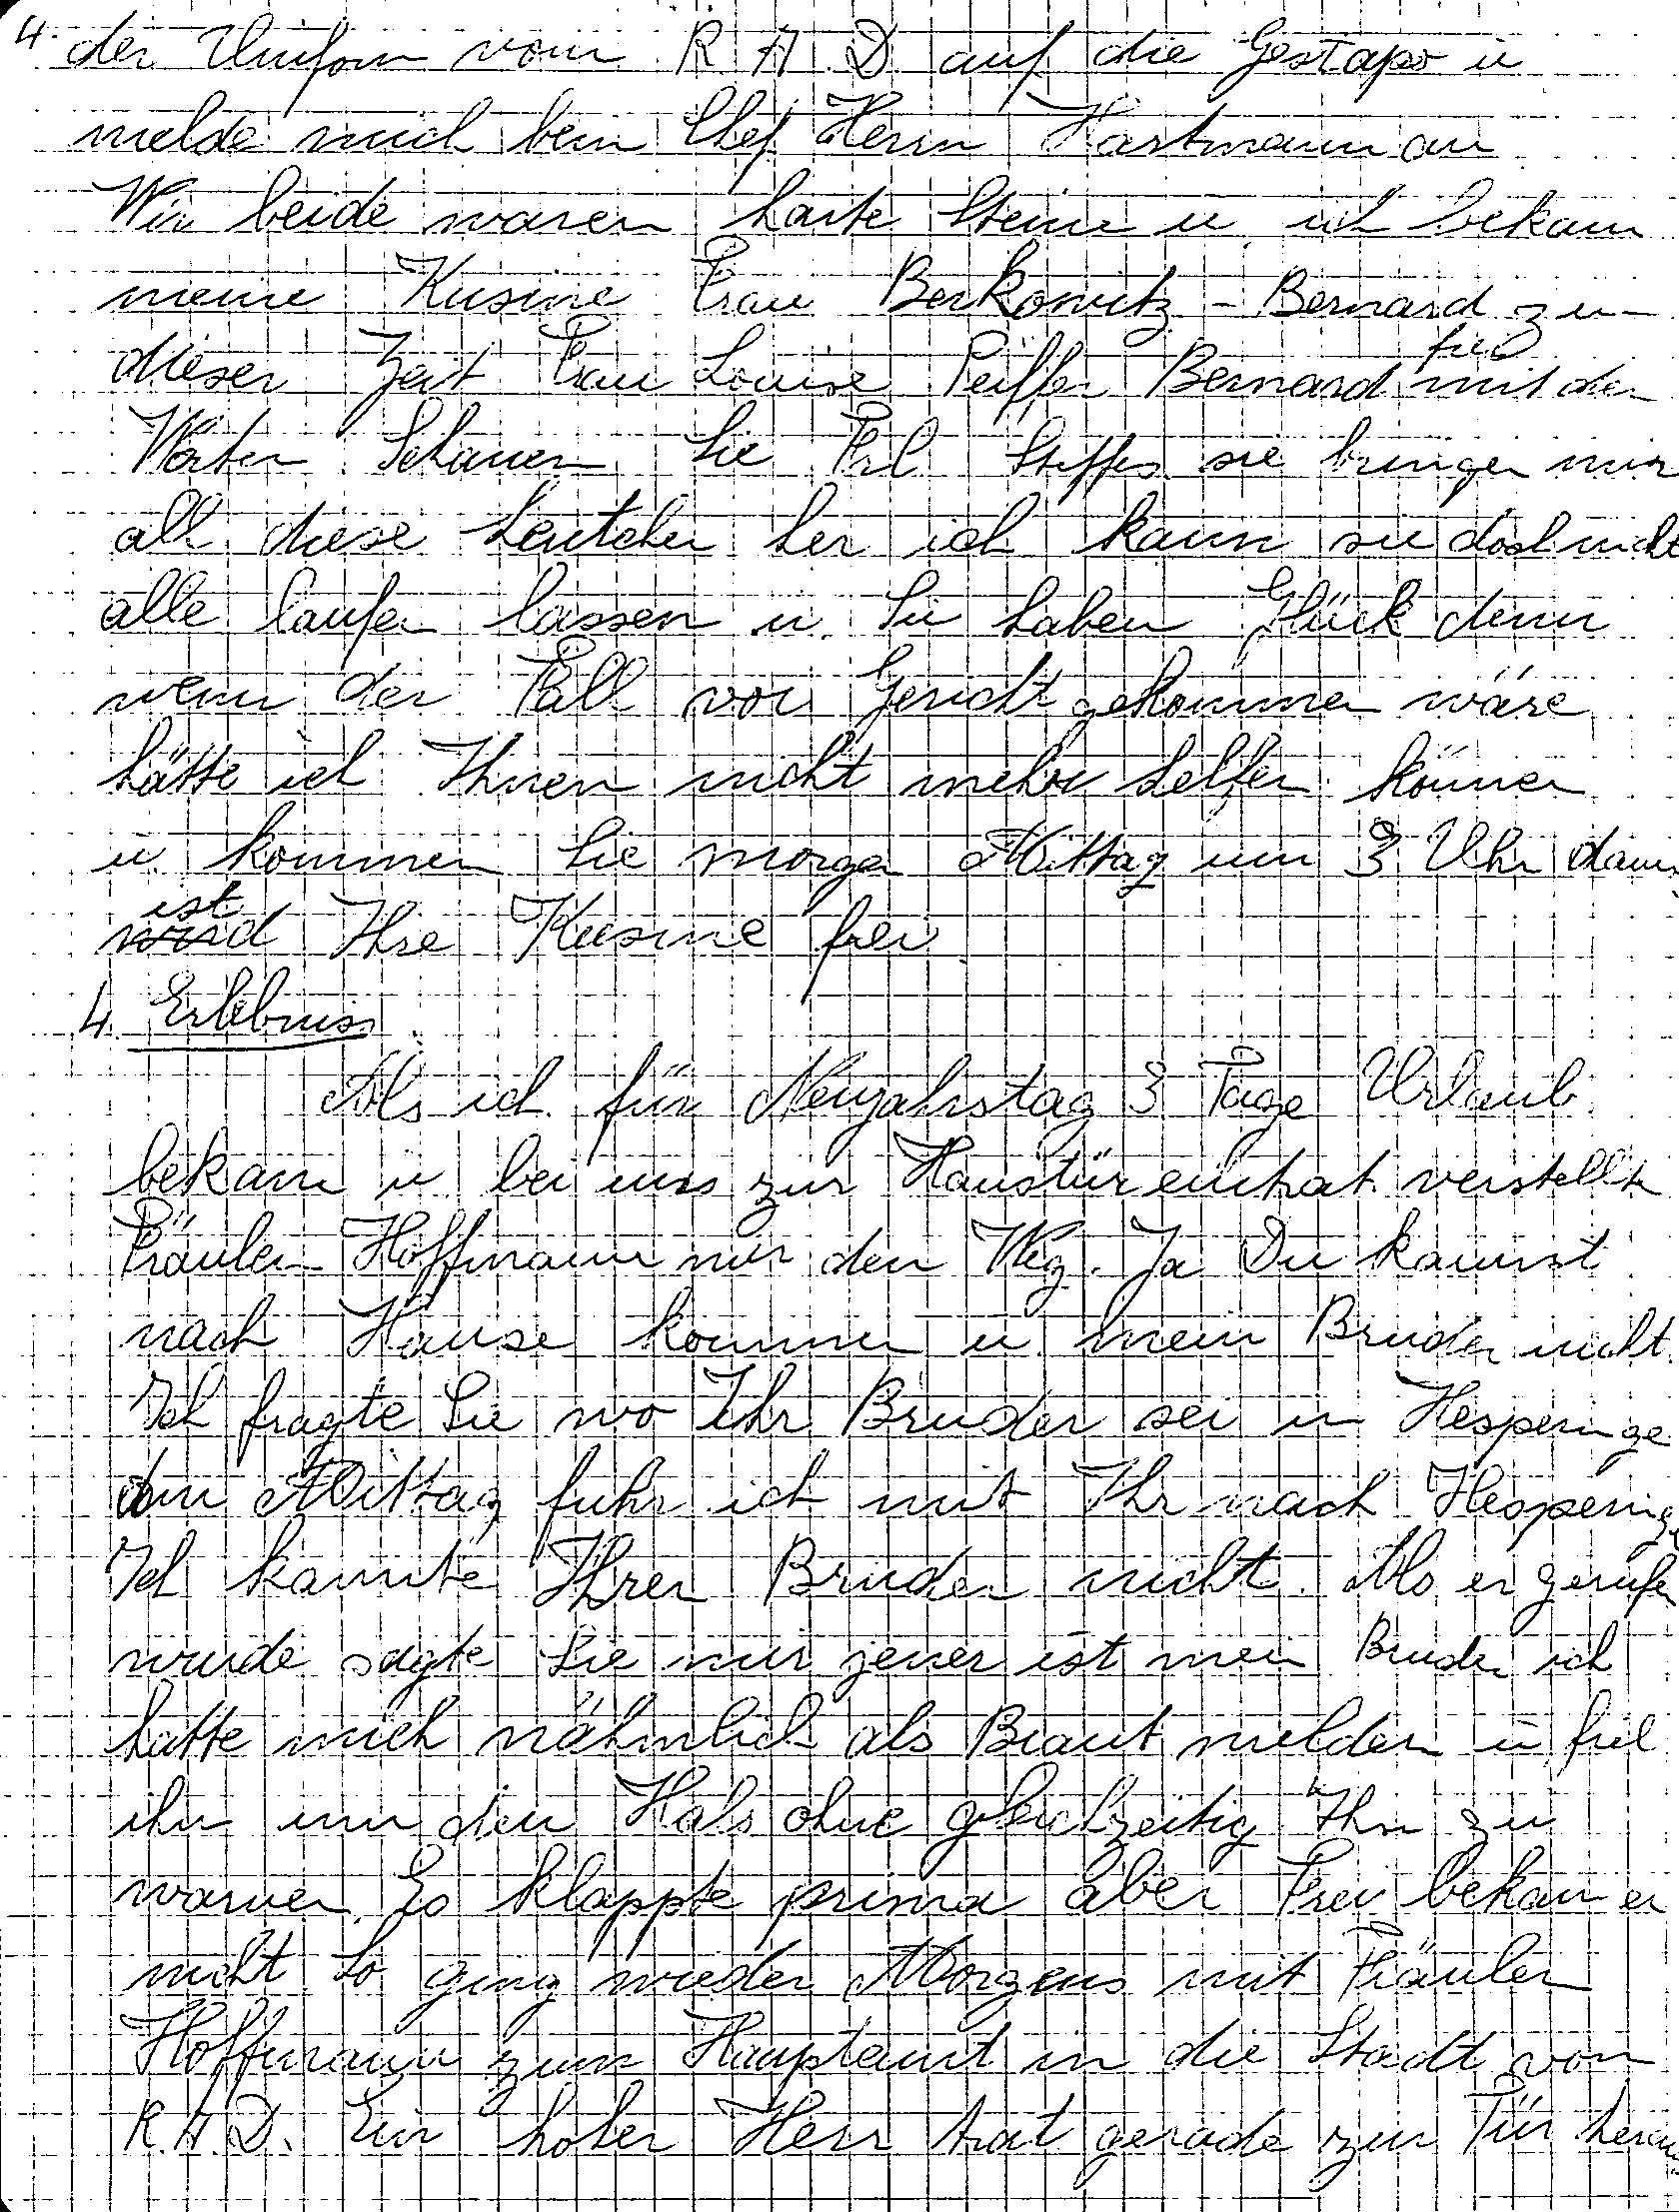 4. der Uniform vom R A D auf die Gestapo u
melde mich beim Chef Herrn Hartmann an
Wir beide waren harte Steine u. ich bekam
meine Kusine Frau Berkowitz - Bernard zu-
dieser Zeit Frau Louise Peiffer Bernard frei mit den
Worten Schauen Sie Frl Steffes sie bringen mir
all diese Leutchen her ich kann sie doch nicht
alle laufen lassen u. Sie haben Glück denn
wenn der Fall vor Gericht gekommen wäre
hätte ich Ihnen nicht mehr helfen können
u. kommen Sie morgen Mittag um 3 Uhr dann
ist Ihre Kusine frei
4. Erlebniss
Als ich für Neujahrstag 3 Tage Urlaub
bekam u bei uns zur Haustür eintrat verstellte
Fräulen Hoffmann mir den Weg. Ja Du kannst
nach Hause kommen u mein Bruder nicht.
Ich fragte Sie wo Ihr Bruder sei in Hesperinge
am Mittag fuhr ich mit Ihr nach Hesperinge
Ich kannte Ihren Bruder nicht. Als er gerufen
wurde sagte Sie mir jener ist mein Bruder ich
hatte mich nähmlich als Braut melden u fiel
ihn um den Hals ohne gleichzeitig Ihn zu
warnen. Es klappte prima aber Frei bekam er
nicht So ging wieder Morgens mit Fräulen
Hoffmann zum Hauptamt in die Stadt vom
R.A.D. Ein hoher Herr trat gerade zur Tür heraus